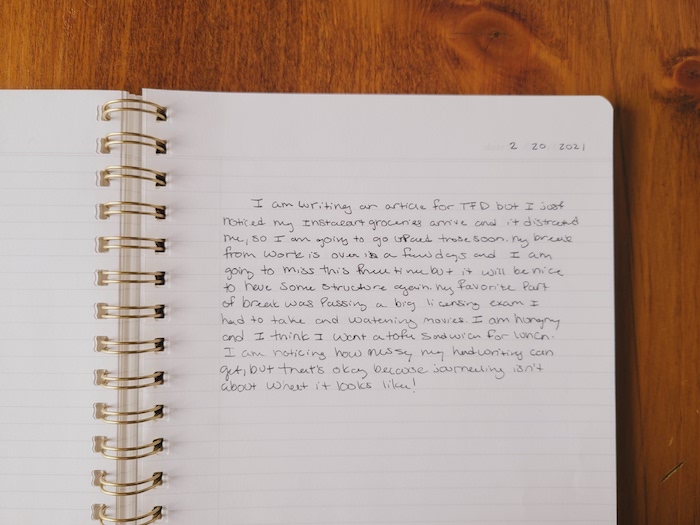 2 20 2021
I am writing an article for TFD but I just
noticed my Instacart groceries arrive and it distracted
me, so I am going to go unpack those soon. My break
from work is over in a few days and I am
going to miss this free time but it will be nice
to have some structure again. My favorite part
of break was passing a big licensing exam I
had to take and watching movies. I am hungry
and I think I want a tofu sandwich for lunch.
I am noticing how messy my handwriting can
get, but that's okay because journaling isn't
about what it looks like!